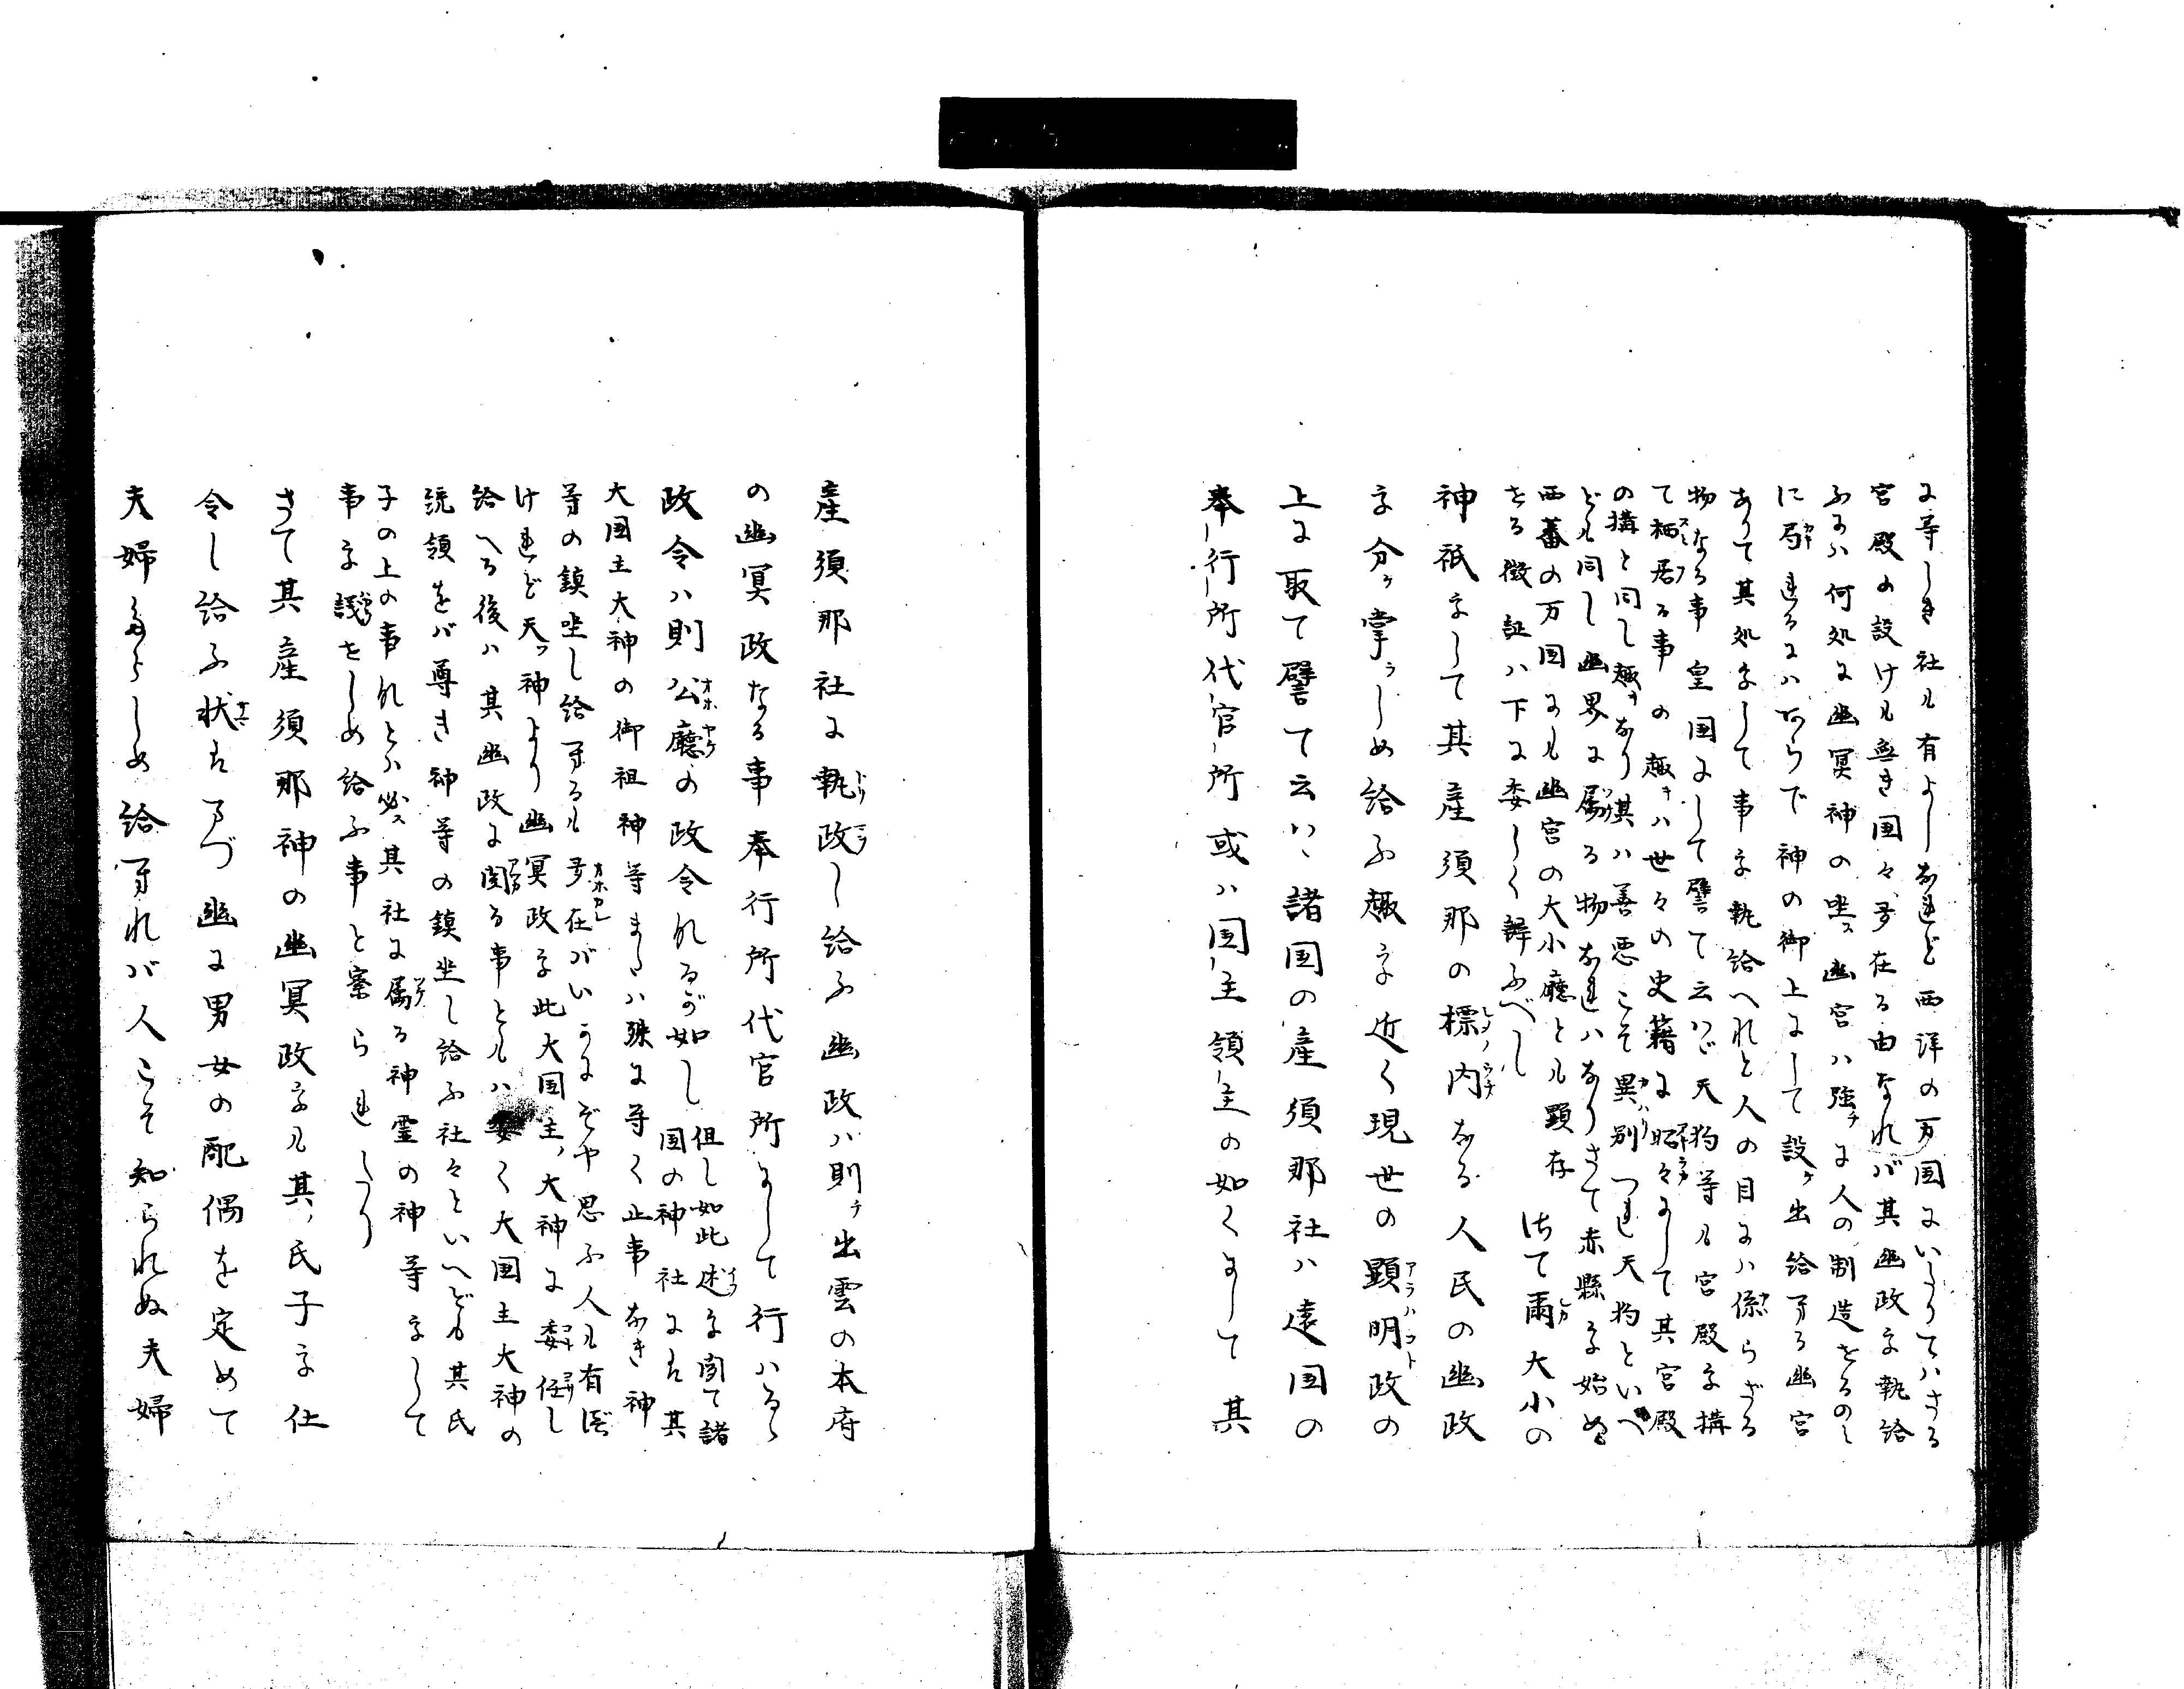 に等しき社も有よしなれど西洋の万国にいたりてハさる
宮殿の設けも無き国々多在る由なれバ其幽政を執給
ふにハ何処に幽冥神の坐ス幽宮ハ強チに人の制造せるのミ
に局れるにハあらで神の御上にして設ケ出給へる幽宮
ありて其処にして事を執給へれと人の目にハ係らざる
物なる事皇国にして譬て云ハゞ天狗等も宮殿を構
て栖居る事の趣キハ世々の史籍に昭々にして其宮殿
の構と同し趣キなり其ハ善悪こそ異別つれ天狗といへ
ども同し幽界に属る物なれハなりさて赤縣を始め
西蕃の万国にも幽宮の大小廳とも顕存
せる徴証ハ下に委しく辨ふべし
偖て爾大小の
神祇をして其産須那の標内なる人民の幽政
を分ヶ掌らしめ給ふ趣を近く現世の顕明政の
上に取て譬て云ハゝ諸国の産須那社ハ遠国の
奉行所代官所或ハ国主領主の如くにして其
産須那社に執政し給ふ幽政ハ則チ出雲の本府
の幽冥政なる事奉行所代官所にして行ハるゝ
政令ハ則公廳の政令なるが如し
但し如此述を聞て諸
国の神社にハ其
大国主大神の御祖神等または殊に等く止事なき神
等の鎮坐し給へるも多在バいかにぞや思ふ人も有ぬ
けれど天ッ神より幽冥政を此大国主大神に委任し
給へる後ハ其幽政に関る事ともハ委く大国主大神の
統領せバ尊き神等の鎮坐し給ふ社々といへども其氏
子の上の事なとハ必ス其社に属る神霊の神等をして
事を議をしめ給ふ事と察られたり
さて其産須那神の幽冥政をも其氏子を仕
令し給ふ状ハまづ幽に男女の配偶を定めて
夫婦たらしめ給へれバ人こそ知られぬ夫婦